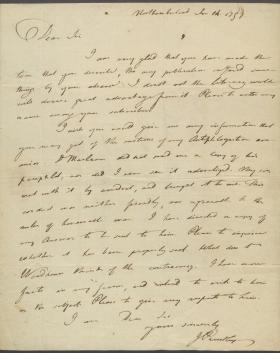 Northumberland Jan. 14. 1798
Dear Sir
I am very glad that you have made the
tour that you describe, the any publication
things by your absence. I doubt not the Library would
will derive great advantage from it. Please to enter my
name among your subscribers.
I wish you would give me any information that
you may get of the motions of my Antiphlogistian
Dr Maclean did not send me a copy of his
pamphlet, nor did I ever see it advertised. My son
met with it by accident, and brought it to me. This
conduct was neither friendly, nor agreeable to the
rules of honourable war. I have directed a copy of
my Answer to be sent to him. Please to inquire
whether it has been properly sent. What does Dr
Woodhouse think of the controversy. I have more
facts in my favour, and intend to write to him
on the subject. Please to give my respects to him.
I am Dear Sir
yours sincerely
J Priestley